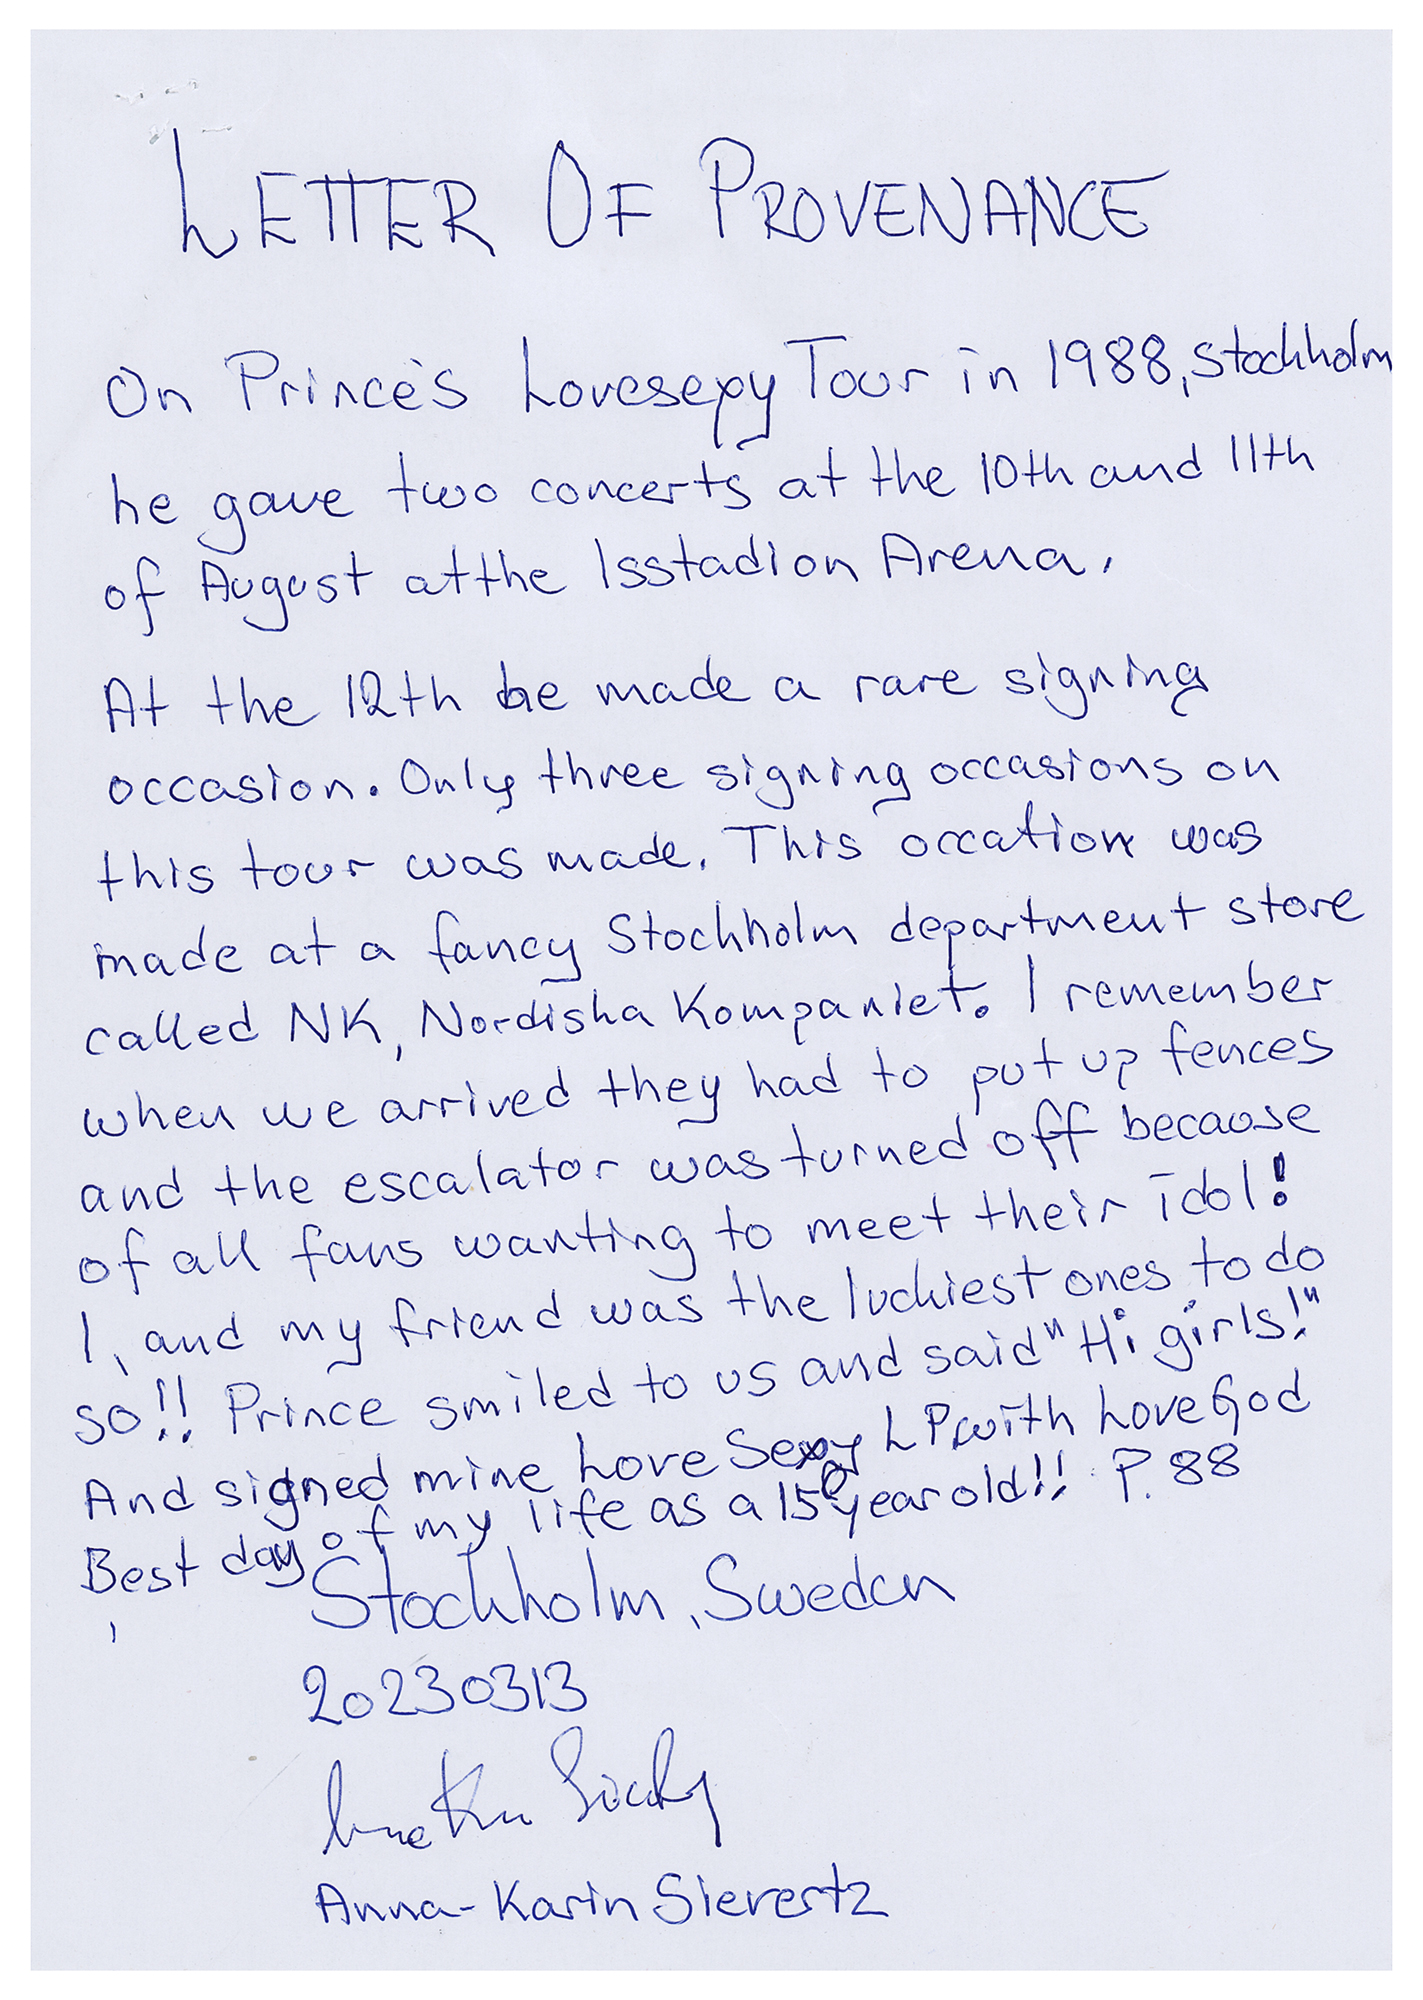 LETTER OF PROVENANCE
On Prince's Lovesexy Tour in 1988, Stockholm
he gave two concerts at the 10th and 11th
of August at the Isstadion Arena.
At the 12th he made a rare signing
occasion. Only three signing occasions on
this tour was made. This occation was
made at a fancy Stockholm department store
called NK, Nordiska Kompaniet. I remember
when we arrived they had to put up fences
and the escalator was turned off because
of all fans wanting to meet their idol!
I, and my friend was the luckiest ones to do
so!! Prince smiled to us and said "Hi girls!"
And signed mine Love Sexy LP with Love God
P. 88
Best day of my life as a 15 year old!!
Stockholm, Sweden
20230313
Anna-Karin Sievertz